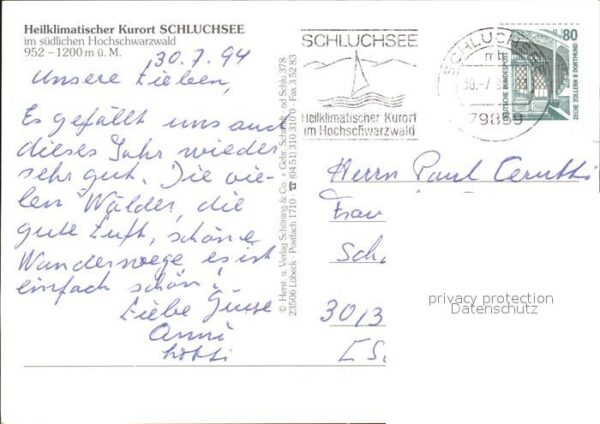 Heilklimatischer Kurort SCHLUCHSEE
im südlichen Hochschwarzwald
952 – 1200 m ü. M.
30.7.94
Unsere Lieben,
Es gefällt uns auch
dieses Jahr wieder
sehr gut. Die vie-
len Wälder, die
gute Luft, schöne
Wanderwege es ist
einfach schön.
Liebe Grüsse
Anni
Lotti
© Herst. u. Verlag Schöning & Co. + Gebr. Schmidt
23506 Lübeck · Postfach 1710 ☎ (04 51) 310 310
Fax 3 52 83
nd Schlu. 378
SCHLUCHSEE
Heilklimatischer Kurort
im Hochschwarzwald
SCHLUCHSEE
30.-7.
79859
80
DEUTSCHE BUNDESPOST
ZECHE ZOLLERN II DORTMUND
Herrn Paul Cerutti
Frau
Sch
3013
privacy protection
Datenschutz